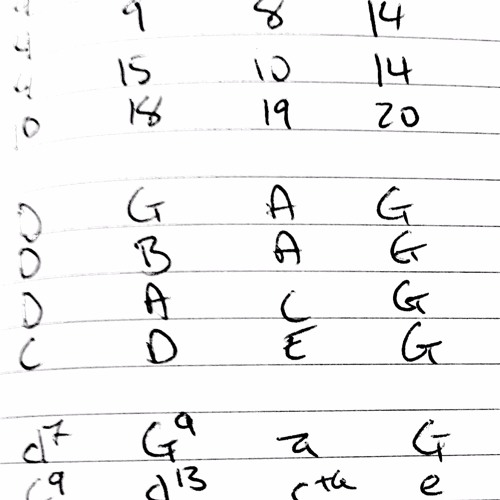 4 9 8 14
4 15 10 14
10 18 19 20
D G A G
D B A G
D A C G
C D E G
d7 G9 a G
c9 d13 e